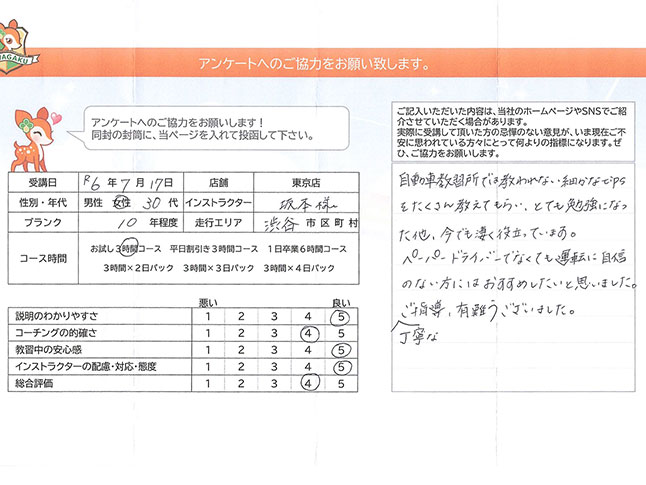 NAGAKU
アンケートへのご協力をお願い致します。
アンケートへのご協力をお願いします！
同封の封筒に、当ページを入れて投函して下さい。
ご記入いただいた内容は、当社のホームページやSNSでご紹
介させていただく場合があります。
実際に受講して頂いた方の忌憚のない意見が、いま現在ご不
安に思われている方々にとって何よりの指標になります。ぜ
ひ、ご協力をお願いします。
受講日 R6年 7月 17日 店舗 東京店
性別・年代 男性 女性 30代 インストラクター 坂本様
ブランク 10年程度 走行エリア 渋谷 市区町村
コース時間 お試し3時間コース 平日割引き3時間コース 1日卒業6時間コース
3時間×2日パック 3時間×3日パック 3時間×4日パック
悪い 良い
説明のわかりやすさ 1 2 3 4 5
コーチングの的確さ 1 2 3 4 5
教習中の安心感 1 2 3 4 5
インストラクターの配慮・対応・態度 1 2 3 4 5
総合評価 1 2 3 4 5
自動車教習所でも教われない細かなtips
をたくさん教えてもらい、とても勉強になっ
た他、今でも凄く役立っています。
ペーパードライバーでなくても運転に自信
のない方にはおすすめしたいと思いました。
ご指導、有難うございました。
丁寧な